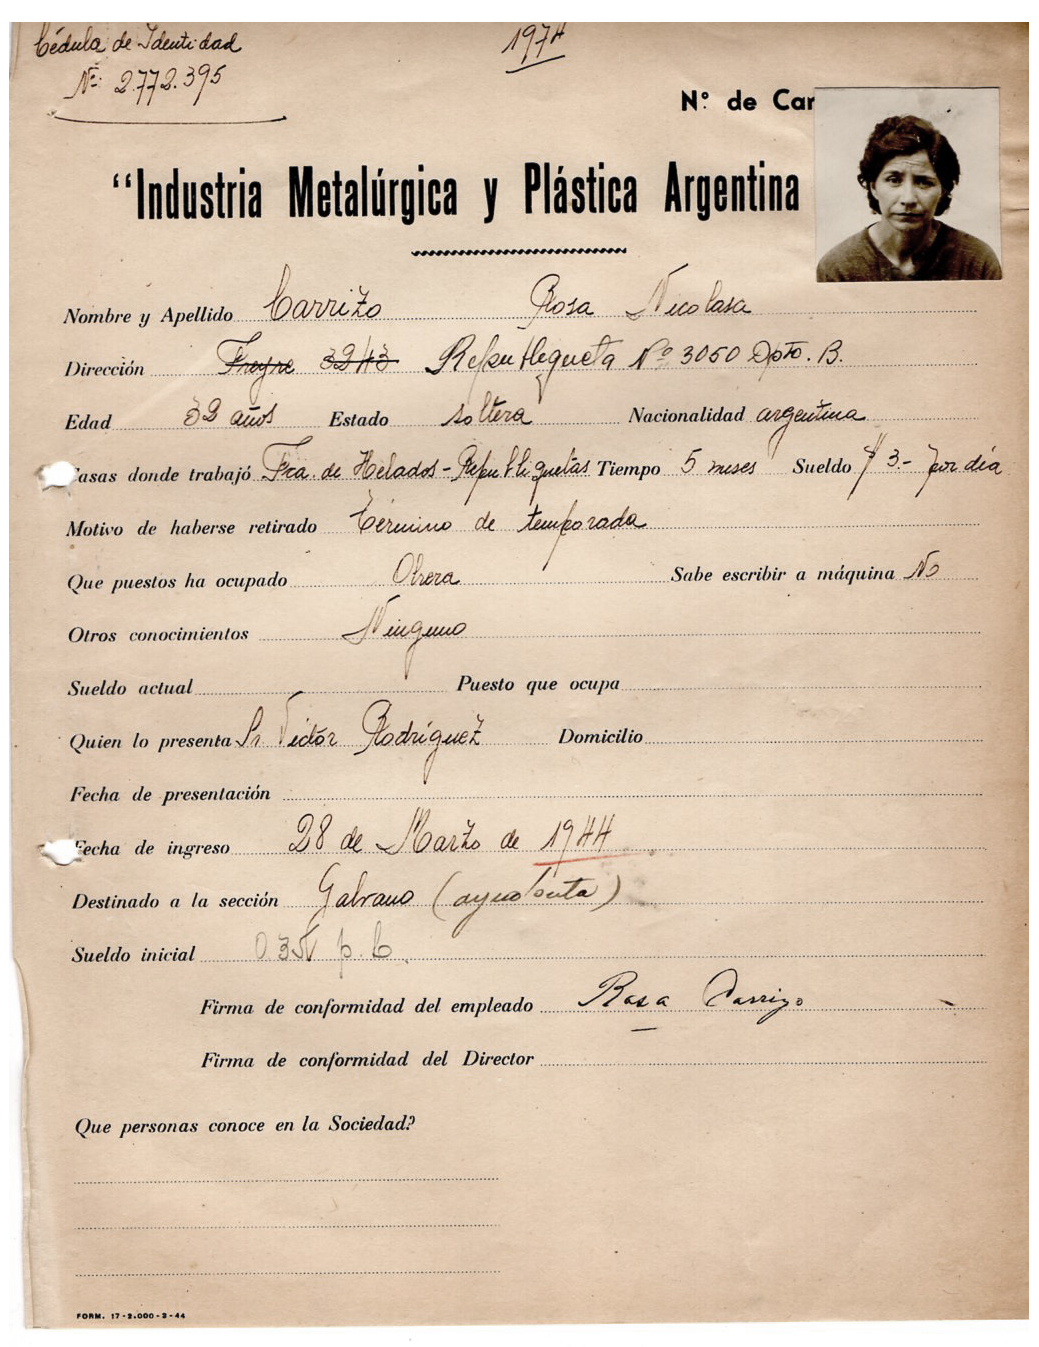 Cédula de Identidad
Nº: 2.772.395
1974
Nº de Car
"Industria Metalúrgica y Plástica Argentina
Nombre y Apellido Carrizo Rosa Nicolasa
Dirección Freyre 3243 Republiqueta Nº 3050 Dpto. B.
Edad 32 años Estado soltera Nacionalidad argentina
asas donde trabajó Fca. de Helados - Republiquetas Tiempo 5 meses Sueldo $ 3.- por día
Motivo de haberse retirado Término de temporada
Que puestos ha ocupado Obrera Sabe escribir a máquina No
Otros conocimientos Ninguno
Sueldo actual Puesto que ocupa
Quien lo presenta Sr Victor Rodríguez Domicilio
Fecha de presentación
Fecha de ingreso 28 de Marzo de 1944
Destinado a la sección Galvano (ayudanta)
Sueldo inicial
Firma de conformidad del empleado Rosa Carrizo
Firma de conformidad del Director
Que personas conoce en la Sociedad?
FORM. 17-2.000-3-44